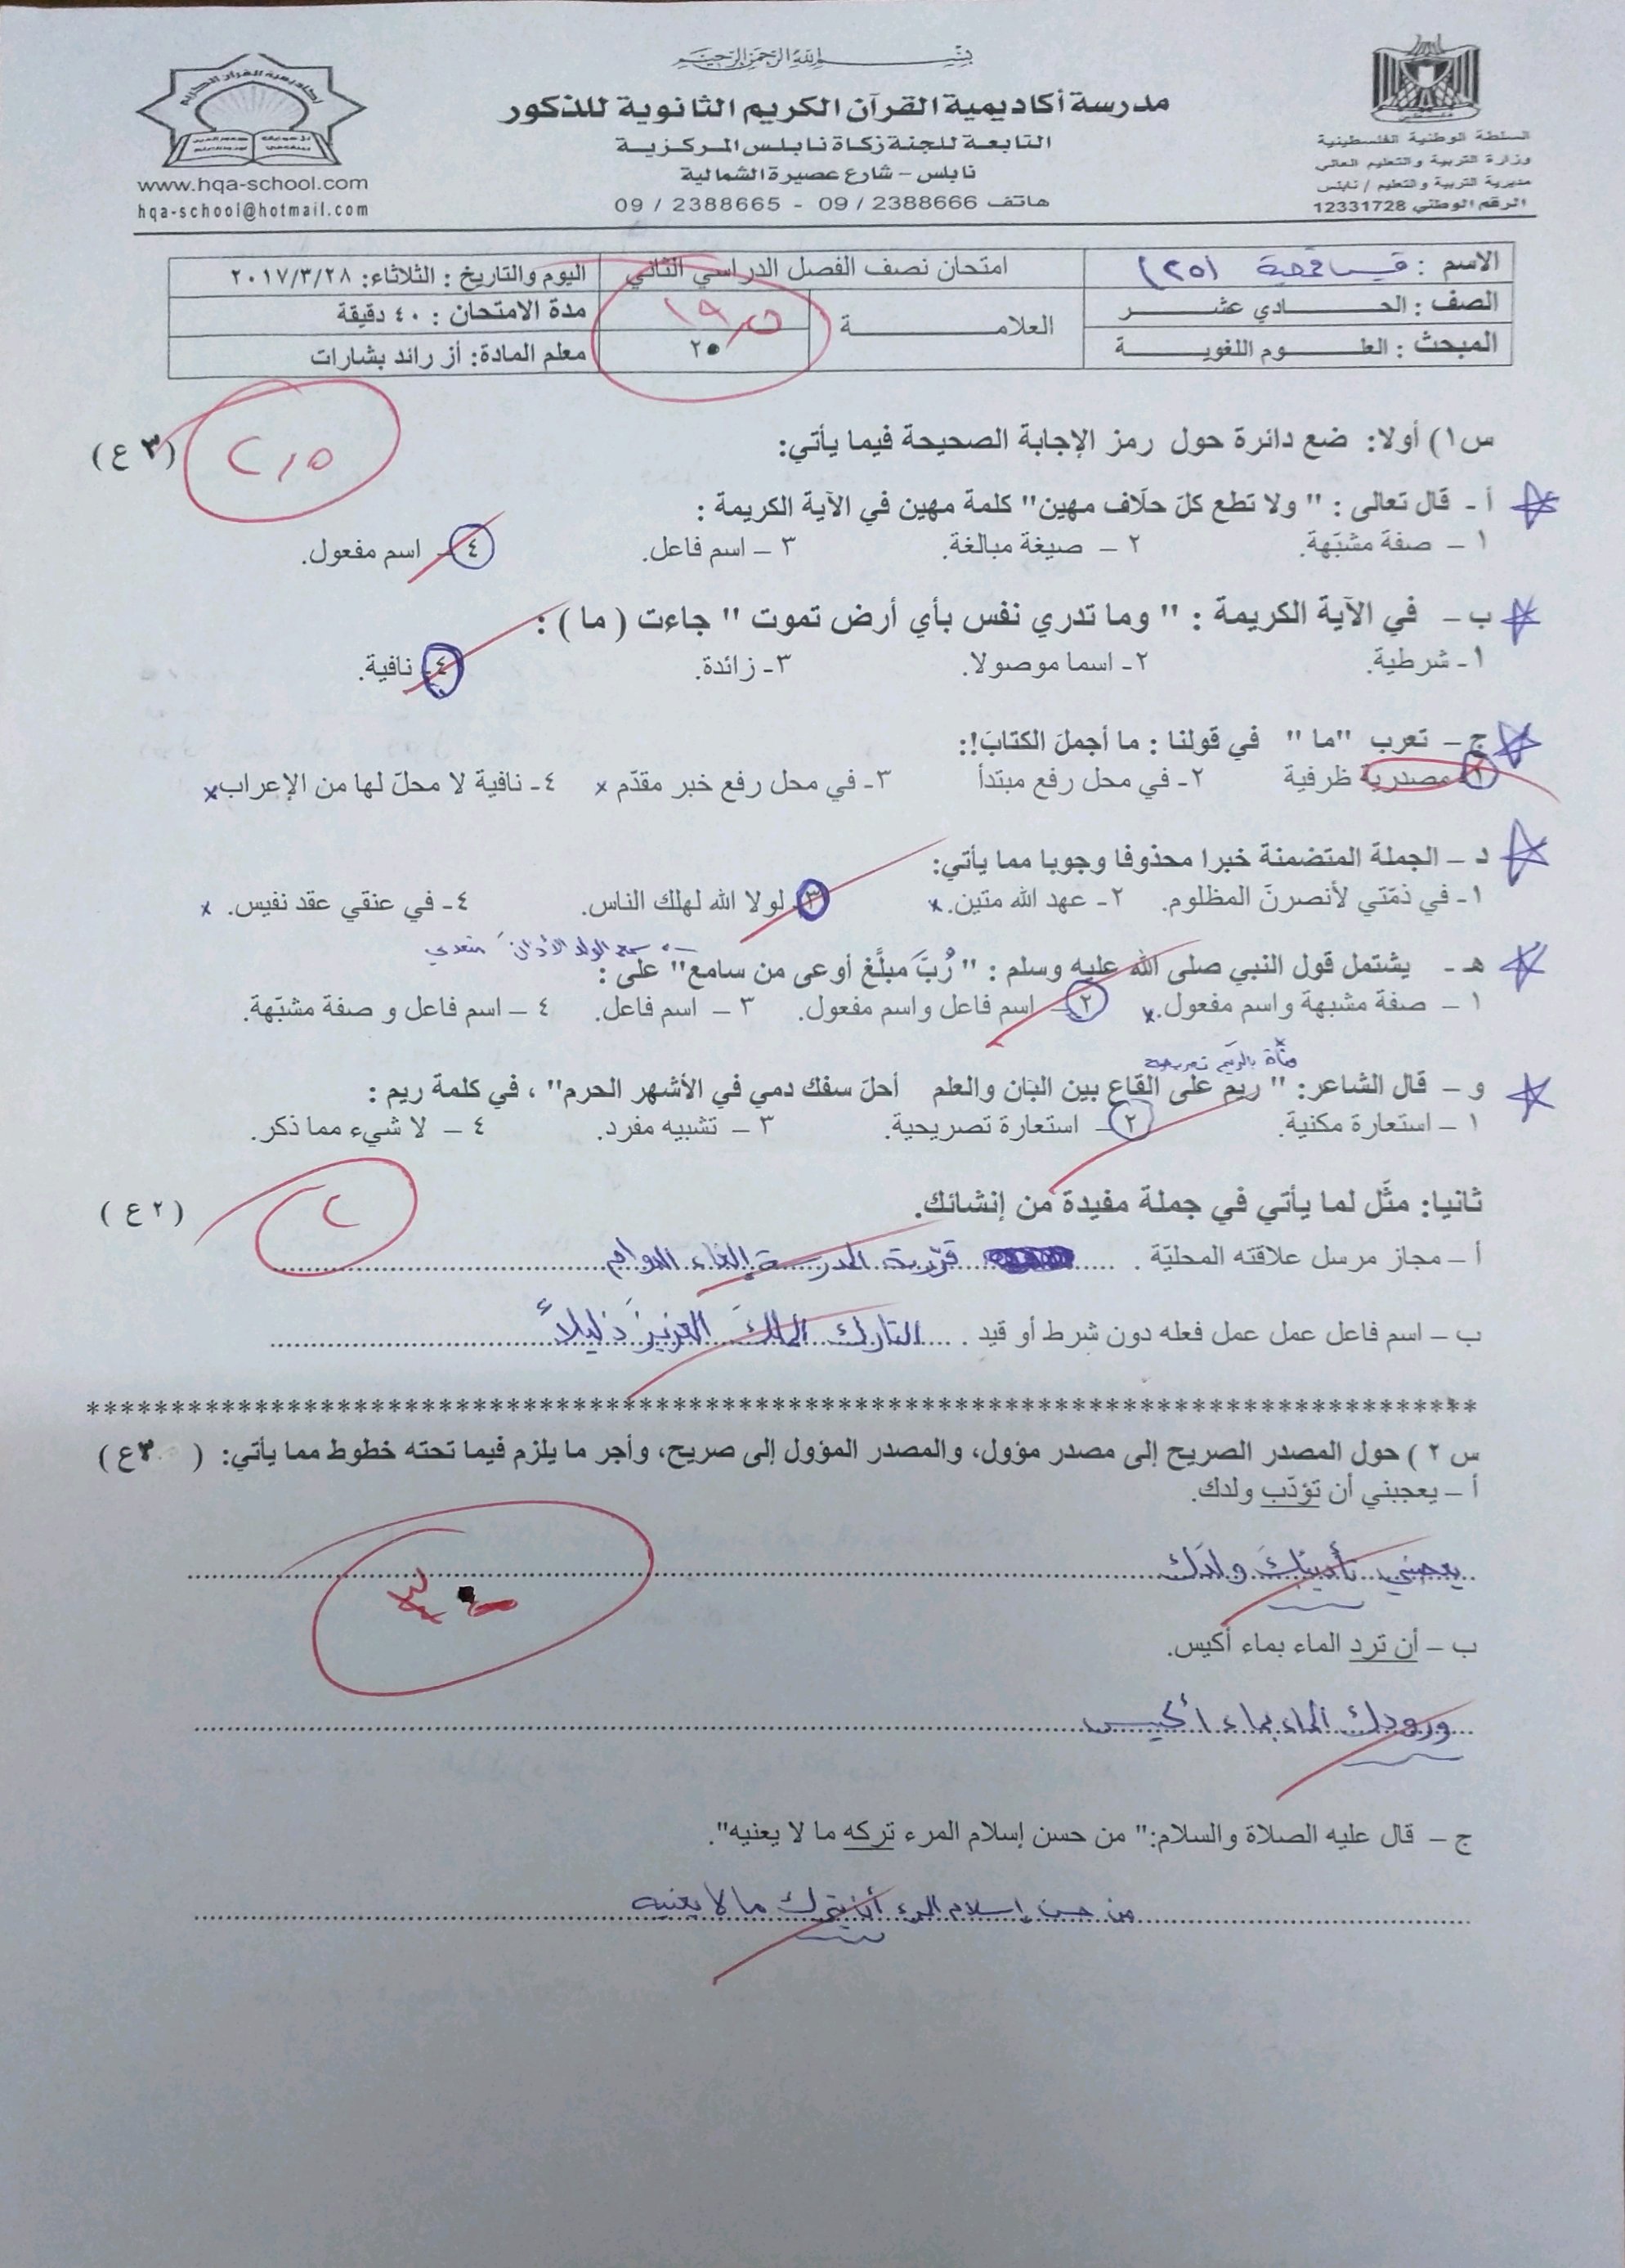 بسم الله الرحمن الرحيم
مدرسة أكاديمية القرآن الكريم الثانوية للذكور
التابعة للجنة زكاة نابلس المركزية
نابلس – شارع عصيرة الشمالية
هاتف 2388666 / 09 - 2388665 / 09
السلطة الوطنية الفلسطينية
وزارة التربية والتعليم العالي
مديرية التربية والتعليم / نابلس
الرقم الوطني 12331728
أكاديمية القرآن الكريم
www.hqa-school.com
hqa-school@hotmail.com
الاسم : (٢٥)
امتحان نصف الفصل الدراسي الثاني
اليوم والتاريخ : الثلاثاء: ٢٠١٧/٣/٢٨
الصف : الحادي عشر
العلامة
١٩,٥
٢٠
مدة الامتحان : ٤٠ دقيقة
المبحث : العلوم اللغوية
معلم المادة: أز رائد بشارات
س١) أولا: ضع دائرة حول رمز الإجابة الصحيحة فيما يأتي: (٣ ع)
٢,٥
أ - قال تعالى : " ولا تطع كلّ حلّاف مهين" كلمة مهين في الآية الكريمة :
١ – صفة مشبّهة. ٢ – صيغة مبالغة. ٣ – اسم فاعل. ٤ – اسم مفعول.
ب – في الآية الكريمة : " وما تدري نفس بأي أرض تموت " جاءت ( ما ) :
١- شرطية. ٢- اسما موصولا. ٣- زائدة. ٤- نافية.
ج – تعرب "ما " في قولنا : ما أجملَ الكتابَ!:
١- مصدرية ظرفية ٢- في محل رفع مبتدأ ٣- في محل رفع خبر مقدّم × ٤- نافية لا محلّ لها من الإعراب ×
د – الجملة المتضمنة خبرا محذوفا وجوبا مما يأتي:
١- في ذمّتي لأنصرنّ المظلوم. ٢- عهد الله متين. × ٣- لولا الله لهلك الناس. ٤- في عنقي عقد نفيس. ×
سمع الولد الأذان متعدي
هـ - يشتمل قول النبي صلى الله عليه وسلم : " رُبَّ مبلَّغ أوعى من سامع" على :
١ – صفة مشبهة واسم مفعول. × ٢ – اسم فاعل واسم مفعول. ٣ – اسم فاعل. ٤ – اسم فاعل و صفة مشبّهة.
فتاة بالريم تصريحية
و – قال الشاعر: " ريم على القاع بين البان والعلم أحلّ سفك دمي في الأشهر الحرم" ، في كلمة ريم :
١ – استعارة مكنية. ٢ – استعارة تصريحية. ٣ – تشبيه مفرد. ٤ – لا شيء مما ذكر.
ثانيا: مثّل لما يأتي في جملة مفيدة من إنشائك. (٢ ع)
٢
أ – مجاز مرسل علاقته المحليّة . قررت المدرسة إلغاء الدوام
ب – اسم فاعل عمل عمل فعله دون شرط أو قيد . التارك الملك العزيزَ ذليلاً
******************************************************************************
س ٢ ) حول المصدر الصريح إلى مصدر مؤول، والمصدر المؤول إلى صريح، وأجر ما يلزم فيما تحته خطوط مما يأتي: ( ٣ع)
أ – يعجبني أن تؤدّب ولدك.
يعجبني تأديبك ولدَك
ب – أن ترد الماء بماء أكيس.
ورودك الماء بماء أكيس
ج – قال عليه الصلاة والسلام:" من حسن إسلام المرء تركه ما لا يعنيه".
من حسن إسلام المرء أن يترك ما لا يعنيه